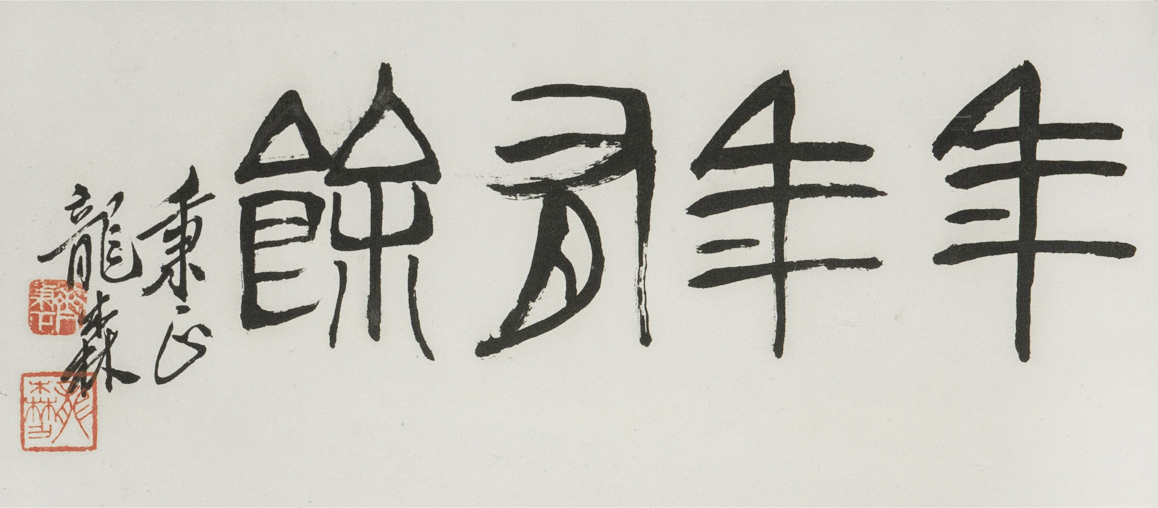 年年有餘
秉正
龍森